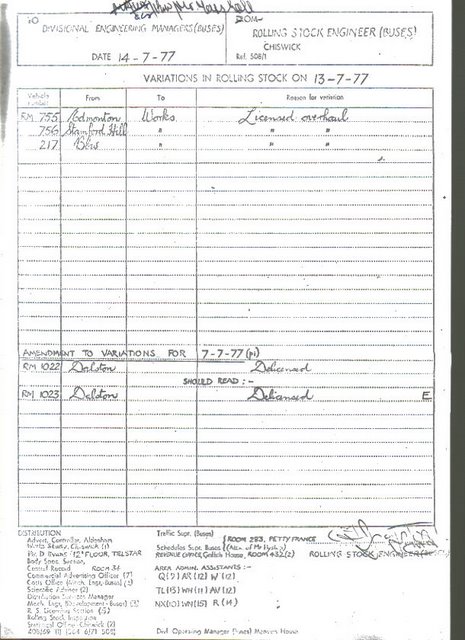 TO
DIVISIONAL ENGINEERING MANAGERS (BUSES)
DATE 14-7-77
FROM
ROLLING STOCK ENGINEER (BUSES)
CHISWICK
Ref. 508/1
VARIATIONS IN ROLLING STOCK ON 13-7-77
Vehicle number From To Reason for variation
RM 755 Edmonton Works Licensed overhaul
756 Stamford Hill " " "
217 " " "
AMENDMENT TO VARIATIONS FOR 7-7-77 (p1)
RM 1022 Dalston Delicensed
SHOULD READ :-
RM 1023 Dalston Delicensed E
DISTRIBUTION
Advert. Controller, Aldenham
Works Study, Chiswick (1)
Mr. D Evans, 12th FLOOR, TELSTAR
Body Supt. Section,
Central Record ROOM 34
Commercial Advertising Officer (7)
Costs Office (Mech. Engr. Buses) (3)
Scientific Adviser (2)
Distribution Services Manager
Mech. Engr. (Development - Buses) (3)
R. S. Licensing Section (5)
Rolling Stock Inspector
Traffic Supt. (Buses)
Schedules Supt. Buses (Attn. of Mr
ROOM 283, PETTY FRANCE
REVENUE OFFICE, Griffith House, ROOM 432 (2)
AREA ADMIN. ASSISTANTS :-
Q (9) AR (12) W (12)
TL (15) WN (11) AV (12)
NX (10) WN (15) R (14)
Dist Operating Manager (Buses) Manors House
ROLLING STOCK ENGINEER (BUSES)